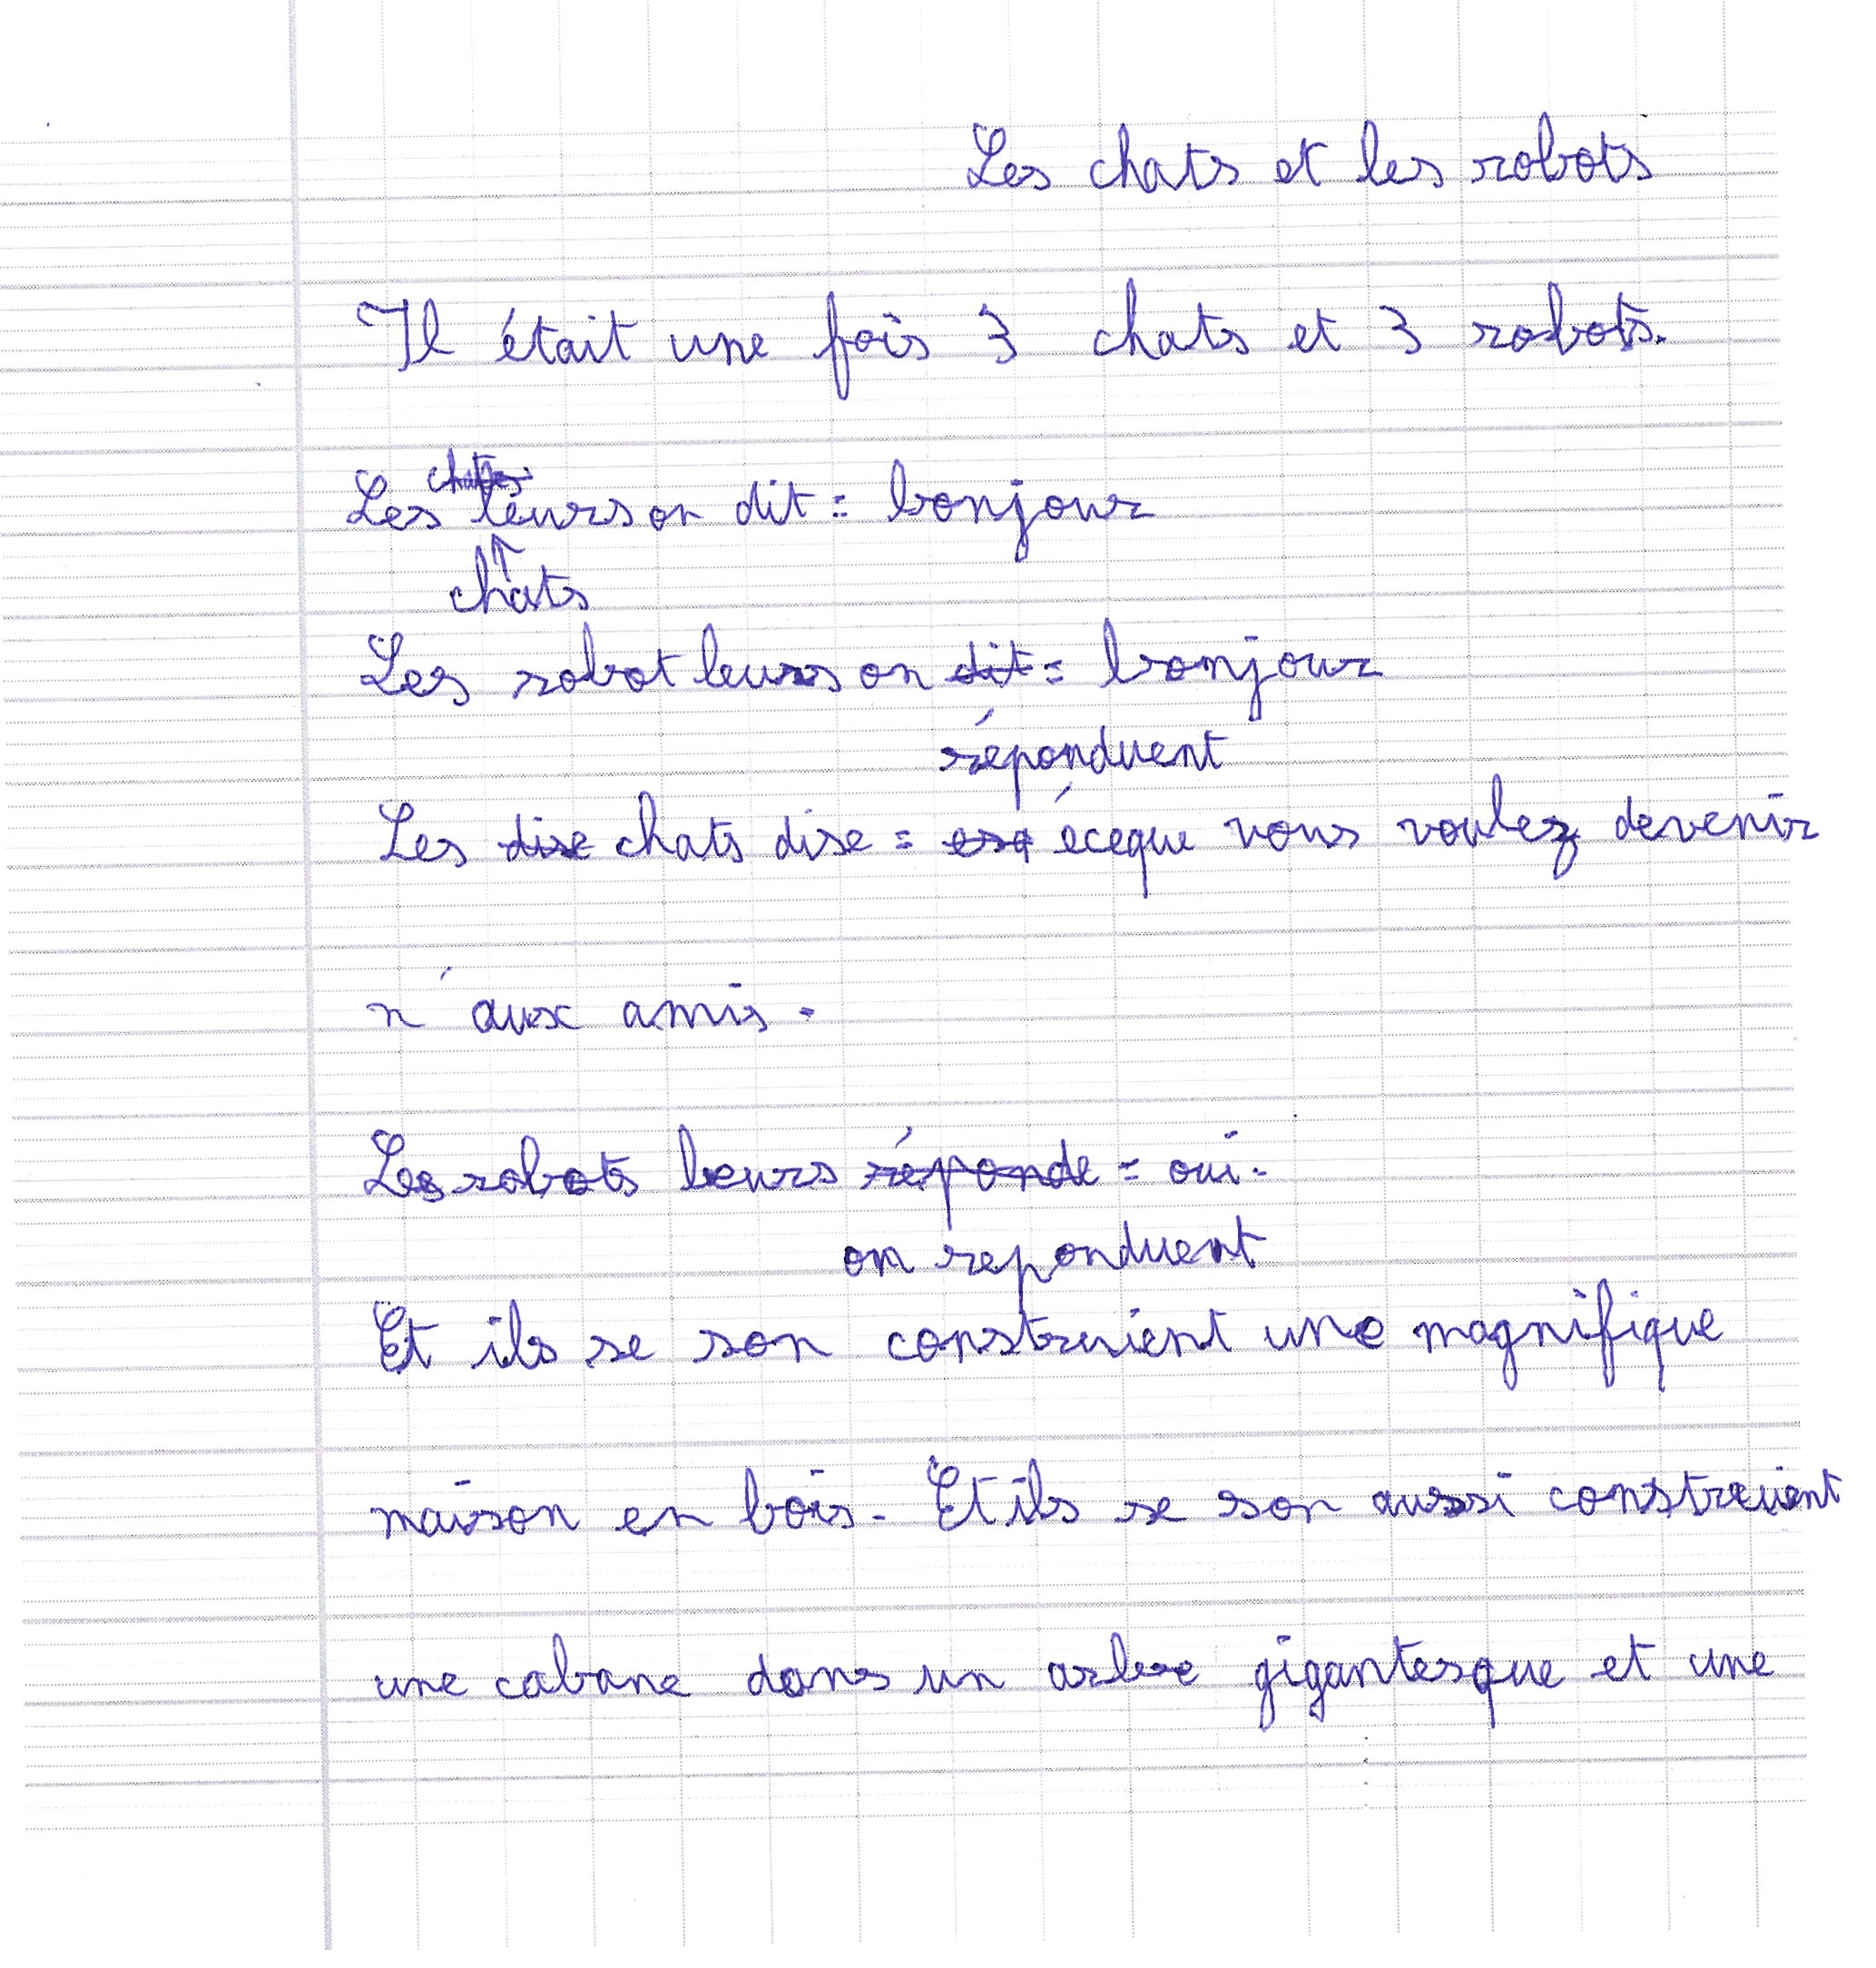 Les chats et les robots
Il était une fois 3 chats et 3 robots.
chats
Les leurs on dit : bonjour
chats
Les robot leurs on dit : bonjour
réponduent
Les dise chats dise : esq éceque vous voulez devenir
n'aux amis.
Les robots leurs réponde : oui.
on reponduent
Et ils se son construient une magnifique
maison en bois. Et ils se son aussi construient
une cabane dans un arbre gigantesque et une